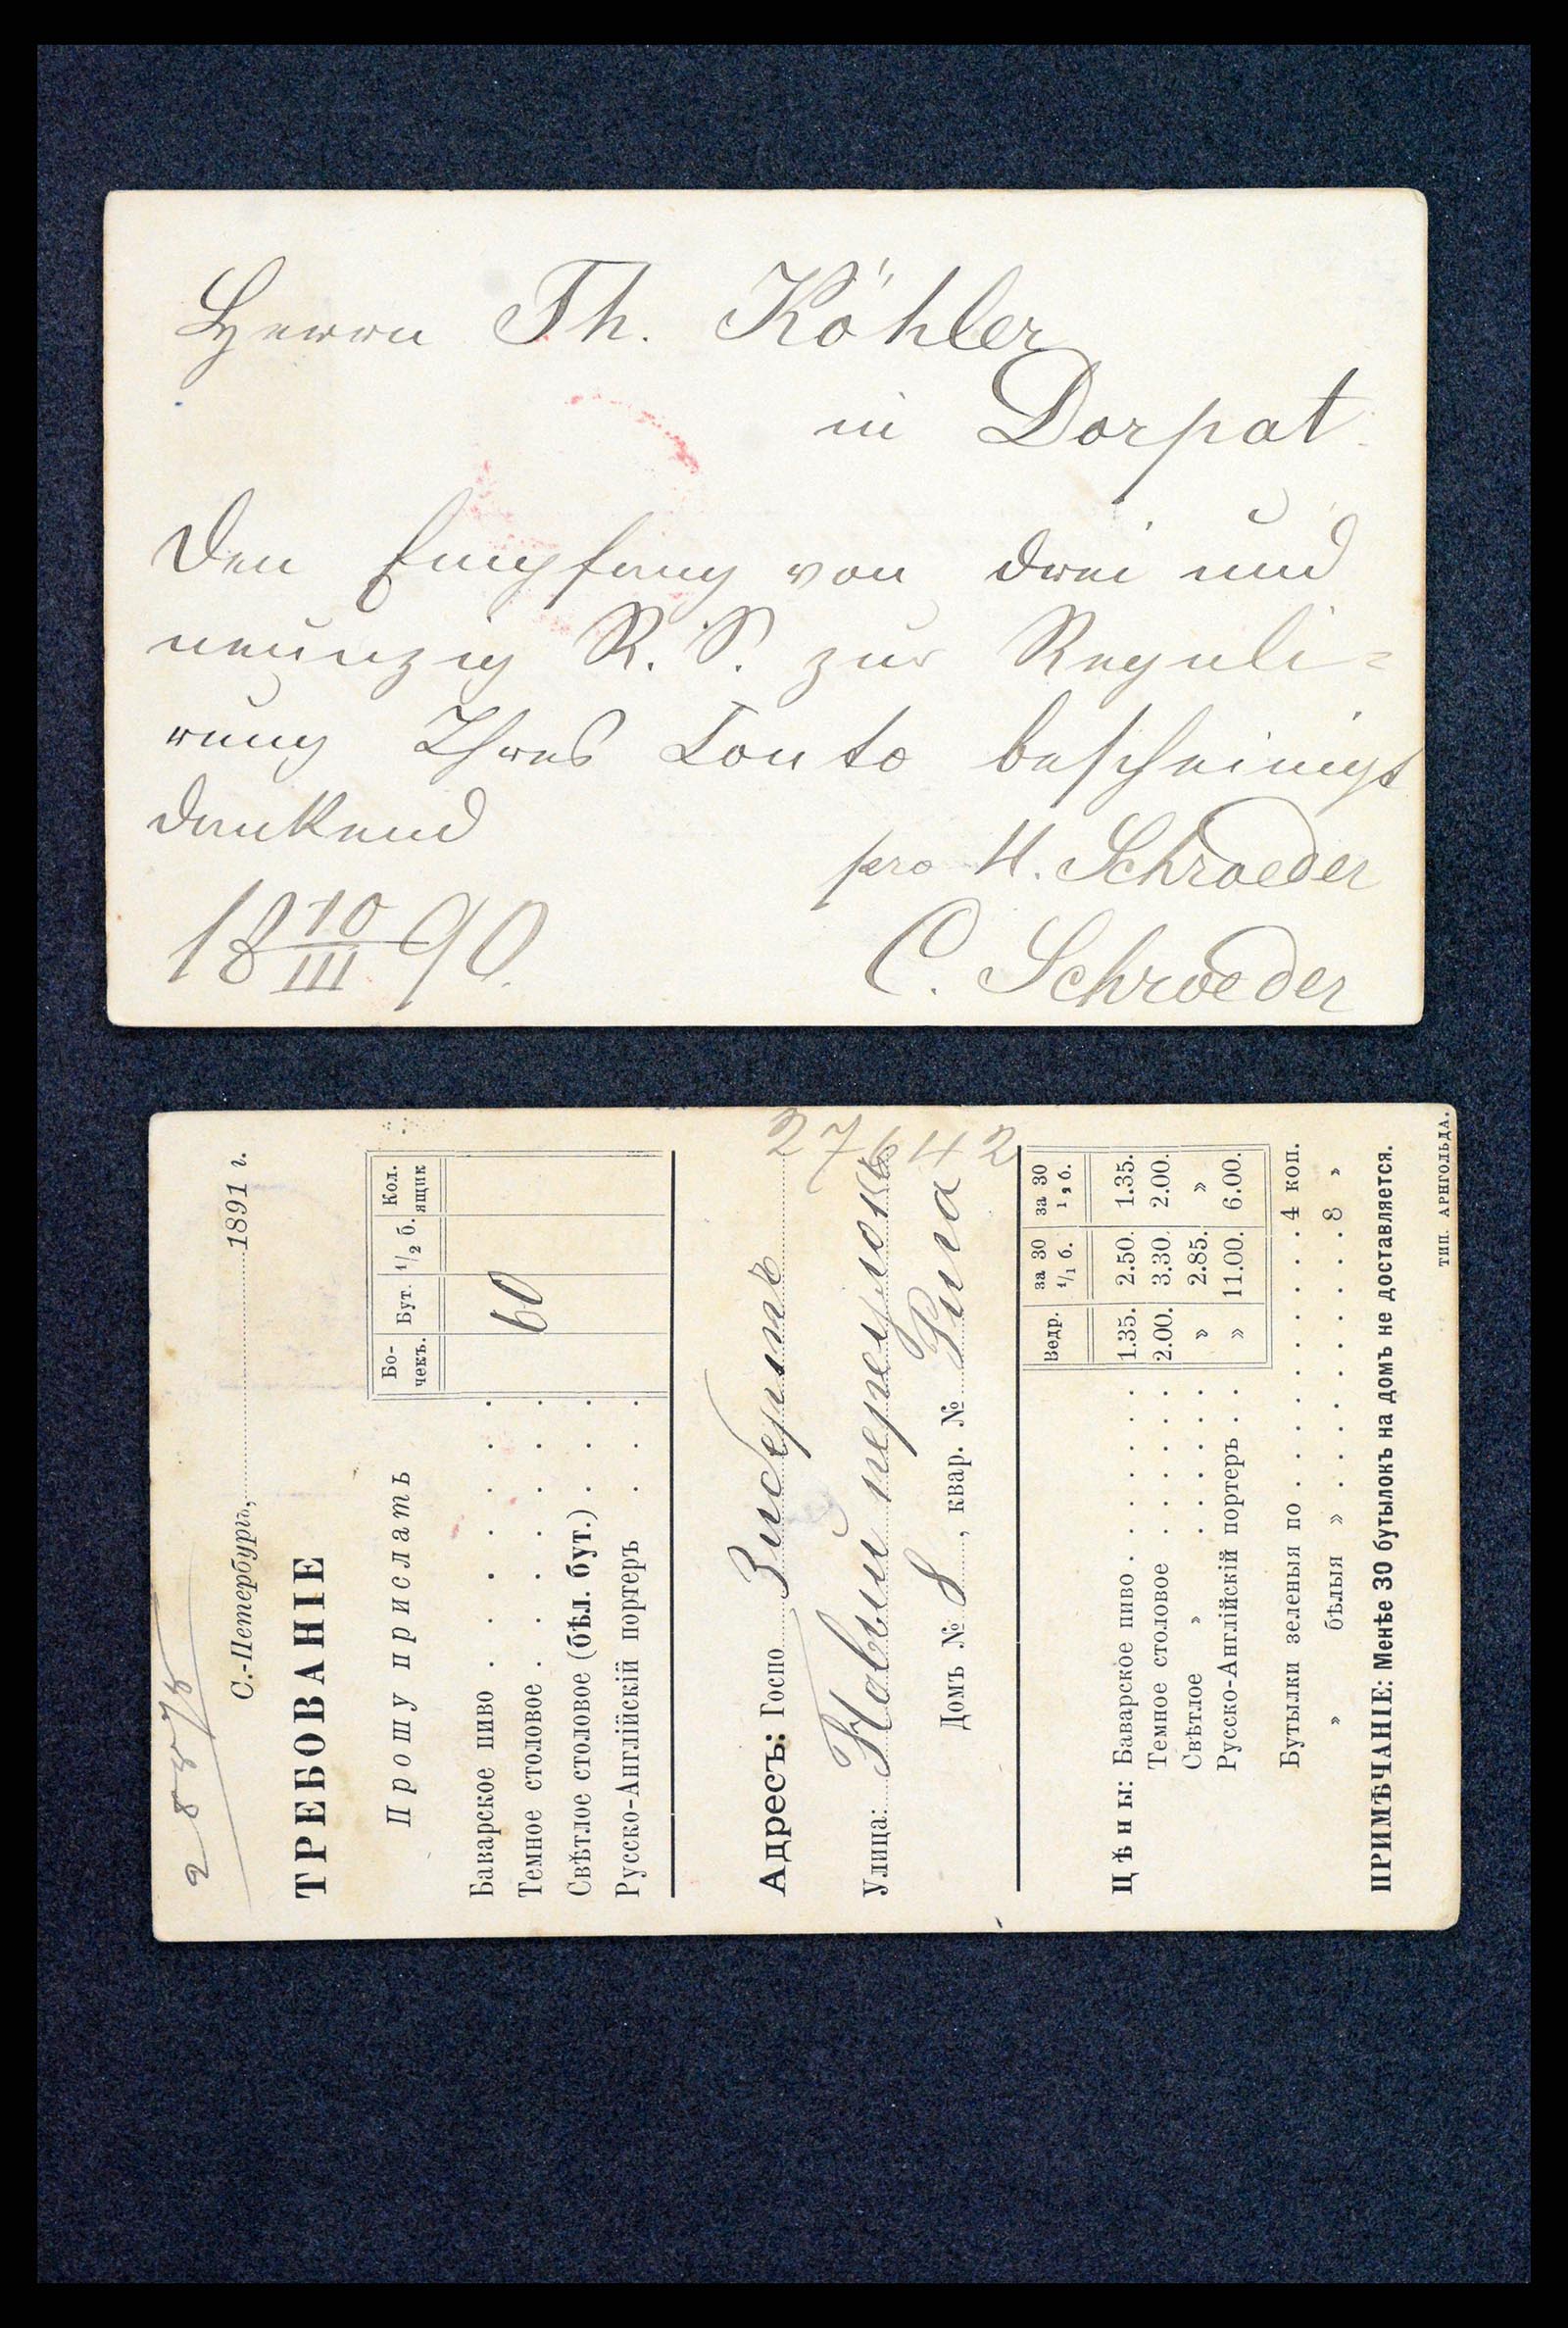 Herrn Th. Köhler
in Dorpat
Den Empfang von drei und
neunzig R. S. zur Reguli=
rung Ihres Conto bescheinigt
dankend
pro H. Schroeder
18 10/III 90.
C. Schroeder
С.-Петербургъ, 1891 г.
ТРЕБОВАНІЕ
Прошу прислать
Бо-чекъ. Бут. 1/2 б. Кол. ящик
Баварское пиво . . . . . . 60
Темное столовое . . . . . .
Свѣтлое столовое (бѣл. бут.) . . .
Русско-Англійскій портеръ . . .
27642
Адресъ: Госпо Зибертъ
Улица: Новый переулокъ
Домъ № 8, квар. №
Ведр. за 30 1/1 б. за 30 1/2 б.
Цѣны: Баварское пиво . . . . . . 1.35. 2.50. 1.35.
Темное столовое . . . . . 2.00. 3.30. 2.00.
Свѣтлое » . . . . . . » 2.85. »
Русско-Англійскій портеръ . . » 11.00. 6.00.
Бутылки зеленыя по . . . . . . . . . . 4 коп.
» бѣлыя » . . . . . . . . . . 8 »
ПРИМѢЧАНІЕ: Менѣе 30 бутылокъ на домъ не доставляется.
ТИП. АРНГОЛЬДА.